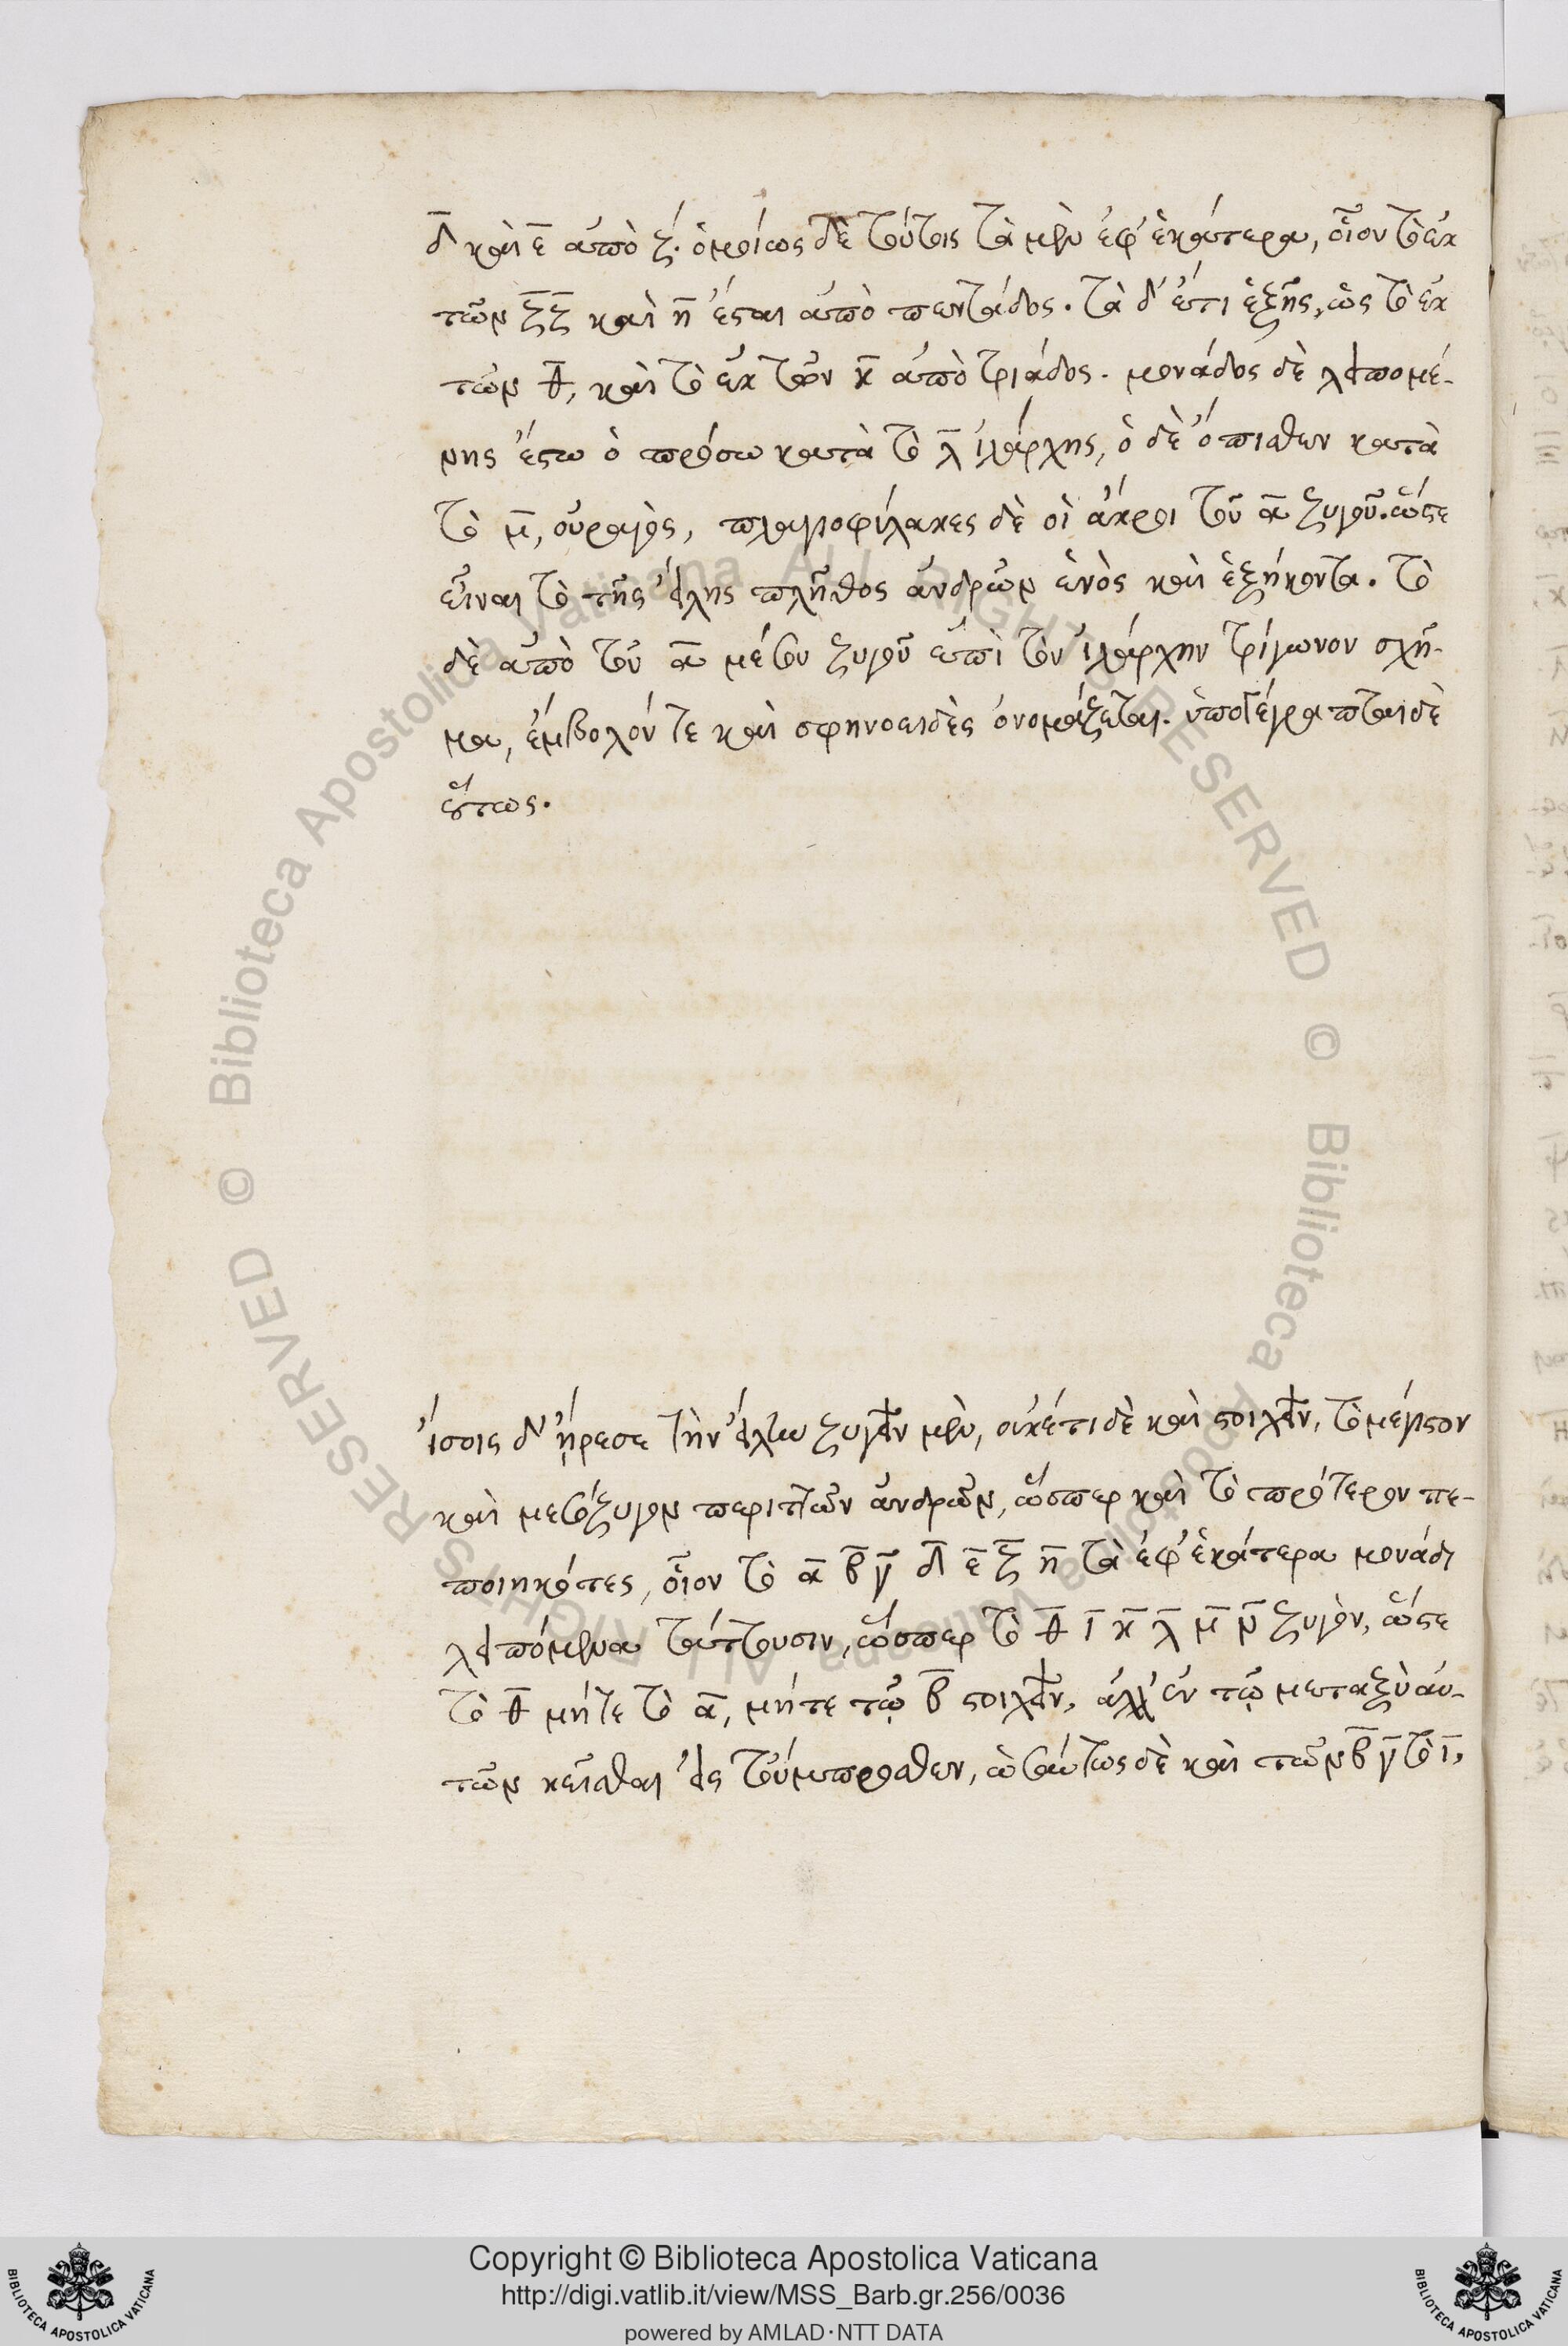 δ̅ καὶ ε̅ ἀπὸ ζ. ὁμοίως δὲ τούτοις τὰ μὲν ἐφ' ἑκάτερα, οἷον τὸ ἐκ
τῶν ζ̅ ζ̅ καὶ η̅ ἔσται ἀπὸ πεντάδος. τὰ δ' ἔτι ἑξῆς, ὡς τὸ ἐκ
τῶν θ̅, καὶ τὸ ἐκ τῶν κ̅ ἀπὸ τριάδος. μονάδος δὲ λειπομέ-
νης ἔστω ὁ πρόσω κατὰ τὸ λ̅ ἰλάρχης, ὁ δὲ ὄπισθεν κατὰ
τὸ μ̅, οὐραγὸς, πλαγιοφύλακες δὲ οἱ ἄκροι τοῦ α̅ ζυγοῦ. ὥστε
εἶναι τὸ τῆς εἴλης πλῆθος ἀνδρῶν ἑνὸς καὶ ἑξήκοντα. τὸ
δὲ ἀπὸ τοῦ α̅ μέσου ζυγοῦ ἐπὶ τὸν ἰλάρχην τρίγωνον σχῆ-
μα, ἔμβολόν τε καὶ σφηνοειδὲς ὀνομάζεται. ὑπογέγραπται δὲ
οὕτως.
ἴσοις δ' ἤρεσε τὴν εἴλην ζυγεῖν μὲν, οὐκέτι δὲ καὶ στοιχεῖν, τὸ μέγιστον
καὶ μέσον ζυγὸν περιττῶν ἀνδρῶν, ὥσπερ καὶ τὸ πρότερον πε-
ποιηκότες, οἷον τὸ α̅ β̅ γ̅ δ̅ ε̅ ζ̅ η̅ τὰ ἐφ' ἑκάτερα μονάδι
λειπόμενα τάττουσιν, ὥσπερ τὸ θ̅ ι̅ κ̅ λ̅ μ̅ ν̅ ζυγὸν, ὥστε
τὸ θ̅ μήτε τὸ α̅, μήτε τῷ β̅ στοιχεῖν, ἀλλ' ἐν τῷ μεταξὺ αὐ-
τῶν κεῖσθαι εἰς τοὔμπροσθεν, ὡσαύτως δὲ καὶ τῶν β̅ γ̅ τὸ ι̅,
Copyright © Biblioteca Apostolica Vaticana
http://digi.vatlib.it/view/MSS_Barb.gr.256/0036
powered by AMLAD·NTT DATA